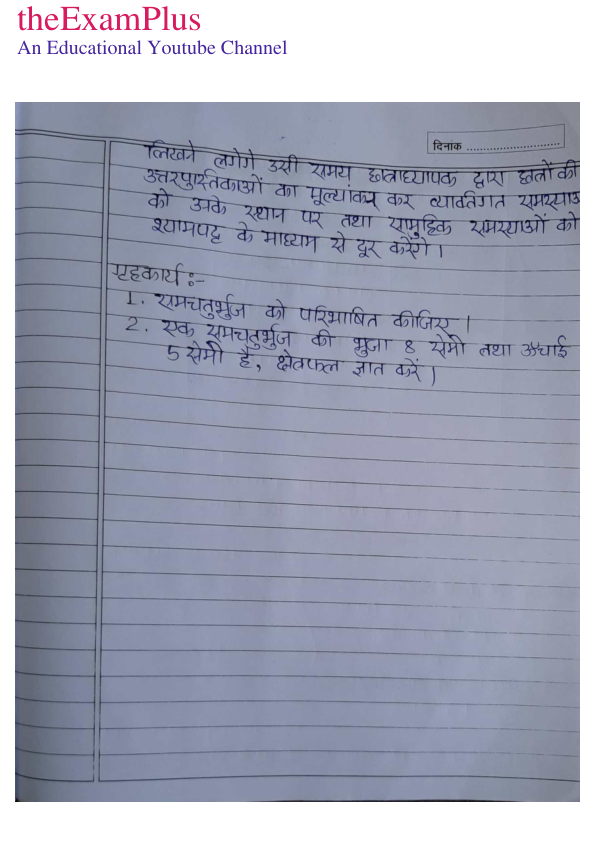 theExamPlus
An Educational Youtube Channel
दिनांक ............................
लिखने लगेगे उसी समय छात्राध्यापक द्वारा छात्रों की
उत्तरपुस्तिकाओं का मूल्यांकन कर व्यक्तिगत समस्याओ
को उनके स्थान पर तथा सामुहिक समस्याओं को
श्यामपट्ट के माध्यम से दूर करेंगे ।
गृहकार्य :-
1. समचतुर्भुज को परिभाषित कीजिए ।
2. एक समचतुर्भुज की भुजा 8 सेमी तथा ऊंचाई
5 सेमी है, क्षेत्रफल ज्ञात करें ।